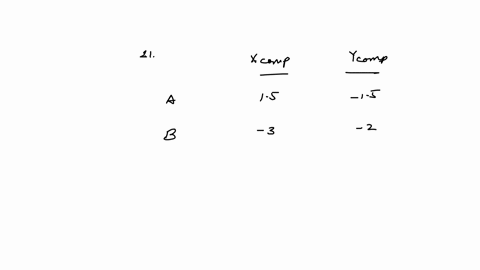 21. Xcomp Ycomp
A 1.5 -1.5
B -3 -2